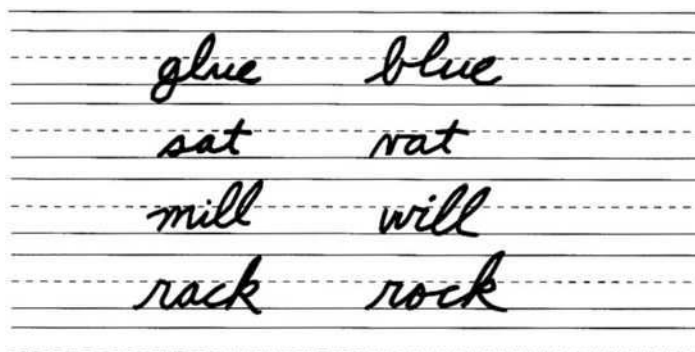 glue blue
sat rat
mill will
rack rock